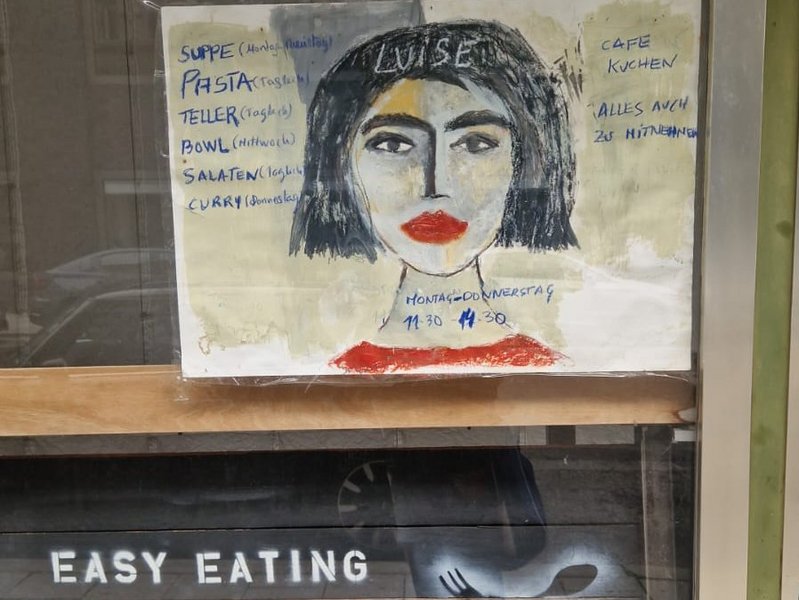 LUISE
SUPPE (Montag
PASTA (Täglich)
TELLER (Täglich)
BOWL (Mittwoch)
SALATEN (Täglich)
CURRY (Donnestag)
CAFE
KUCHEN
ALLES AUCH
ZU MITNEHMEN
MONTAG-DONNERSTAG
11.30 - 14.30
EASY EATING